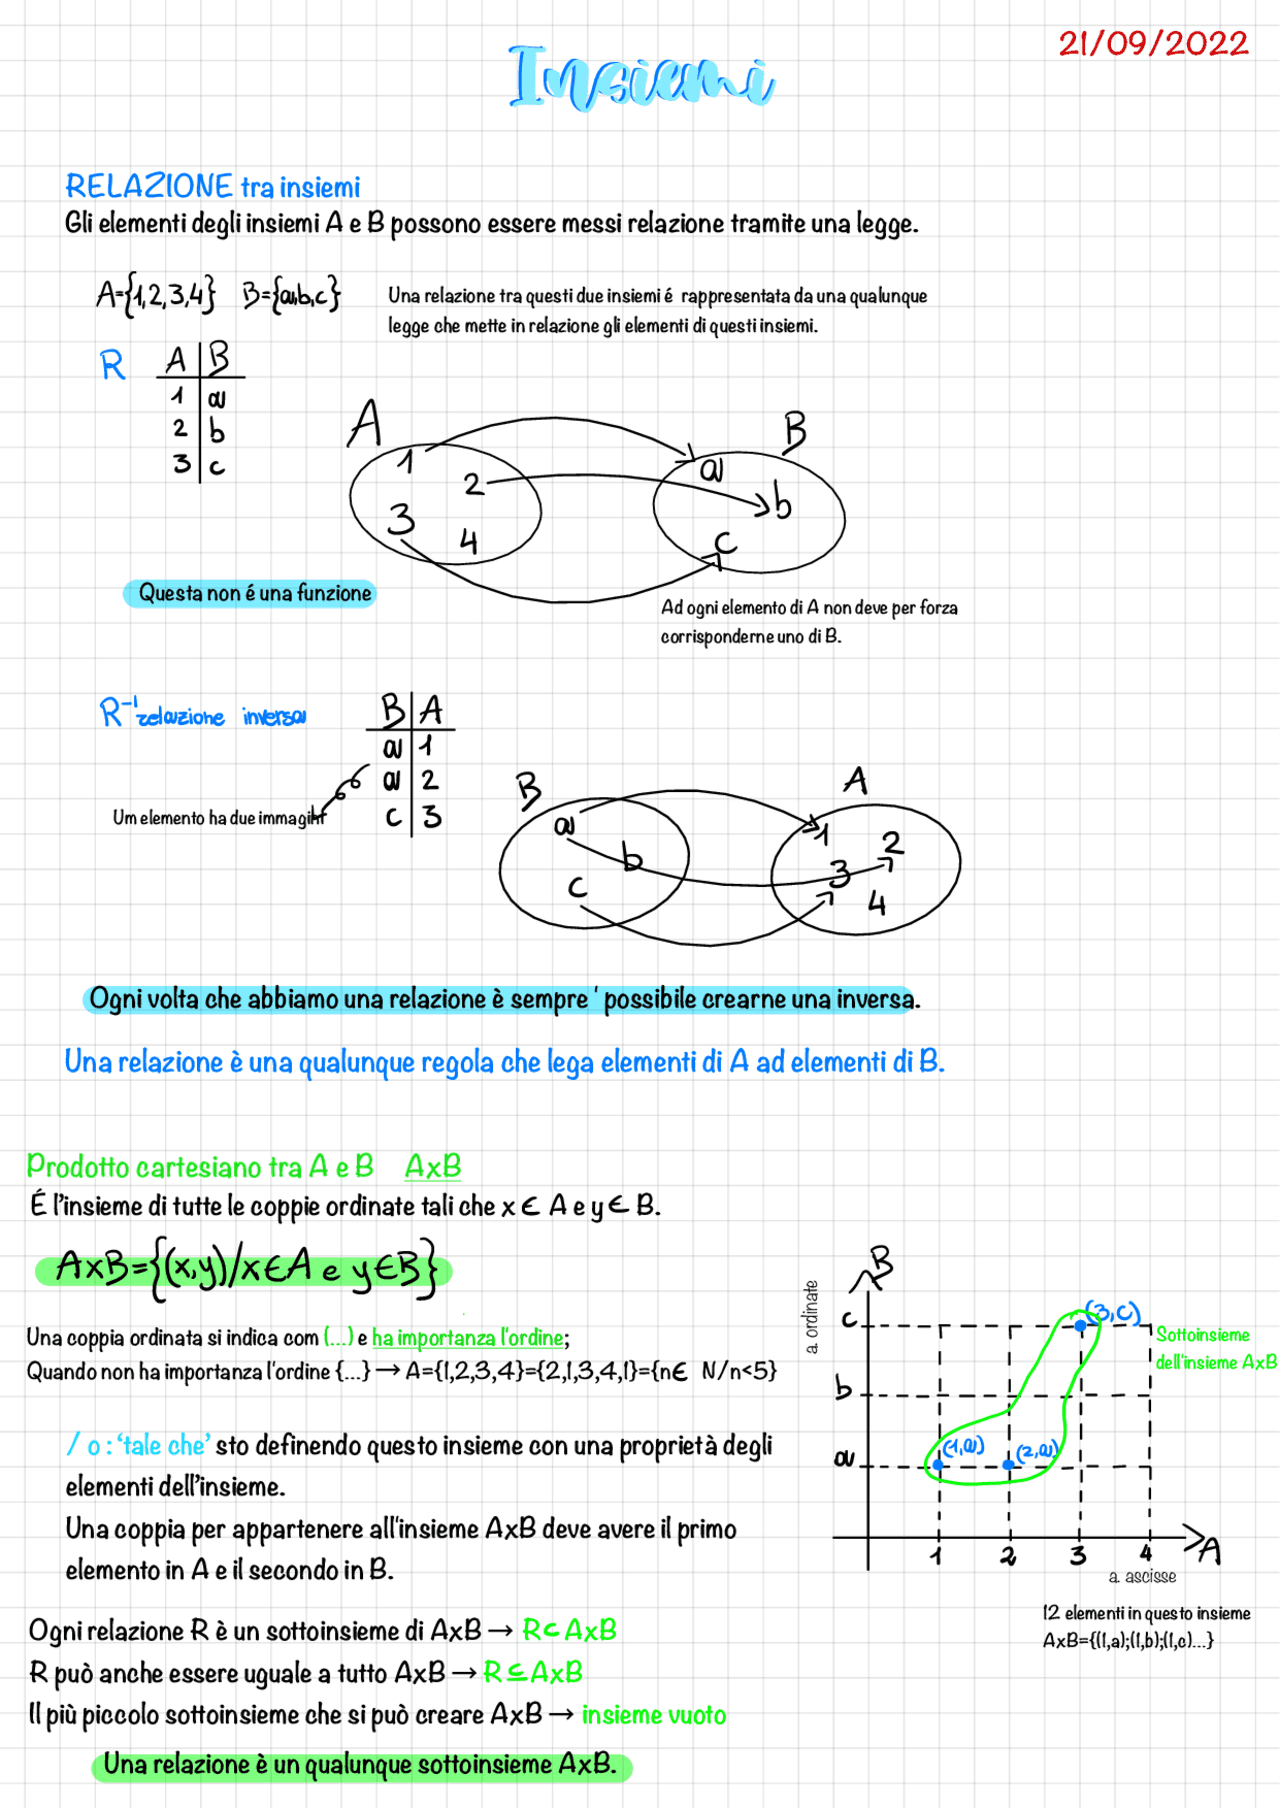 21/09/2022
Insiemi
RELAZIONE tra insiemi
Gli elementi degli insiemi A e B possono essere messi relazione tramite una legge.
A={1,2,3,4} B={a,b,c}
Una relazione tra questi due insiemi é rappresentata da una qualunque
legge che mette in relazione gli elementi di questi insiemi.
R
A B
1 a
2 b
3 c
A
B
1
2
3
4
a
b
c
Questa non é una funzione
Ad ogni elemento di A non deve per forza
corrisponderne uno di B.
R⁻¹ relazione inversa
B A
a 1
a 2
c 3
Um elemento ha due immagini
B
A
a
b
c
1
2
3
4
Ogni volta che abbiamo una relazione è sempre ' possibile crearne una inversa.
Una relazione è una qualunque regola che lega elementi di A ad elementi di B.
Prodotto cartesiano tra A e B AxB
É l'insieme di tutte le coppie ordinate tali che x ∈ A e y ∈ B.
AxB={(x,y)/x∈A e y∈B}
Una coppia ordinata si indica com (...) e ha importanza l'ordine;
Quando non ha importanza l'ordine {...} → A={1,2,3,4}={2,1,3,4,1}={n∈ N/n<5}
/ o : 'tale che' sto definendo questo insieme con una proprietà degli
elementi dell'insieme.
Una coppia per appartenere all'insieme AxB deve avere il primo
elemento in A e il secondo in B.
Ogni relazione R è un sottoinsieme di AxB → R⊂AxB
R può anche essere uguale a tutto AxB → R⊆AxB
Il più piccolo sottoinsieme che si può creare AxB → insieme vuoto
Una relazione è un qualunque sottoinsieme AxB.
B
a. ordinate
c
b
a
(3,c)
(1,a)
(2,a)
Sottoinsieme
dell'insieme AxB
1 2 3 4 A
a. ascisse
12 elementi in questo insieme
AxB={(1,a);(1,b);(1,c)...}